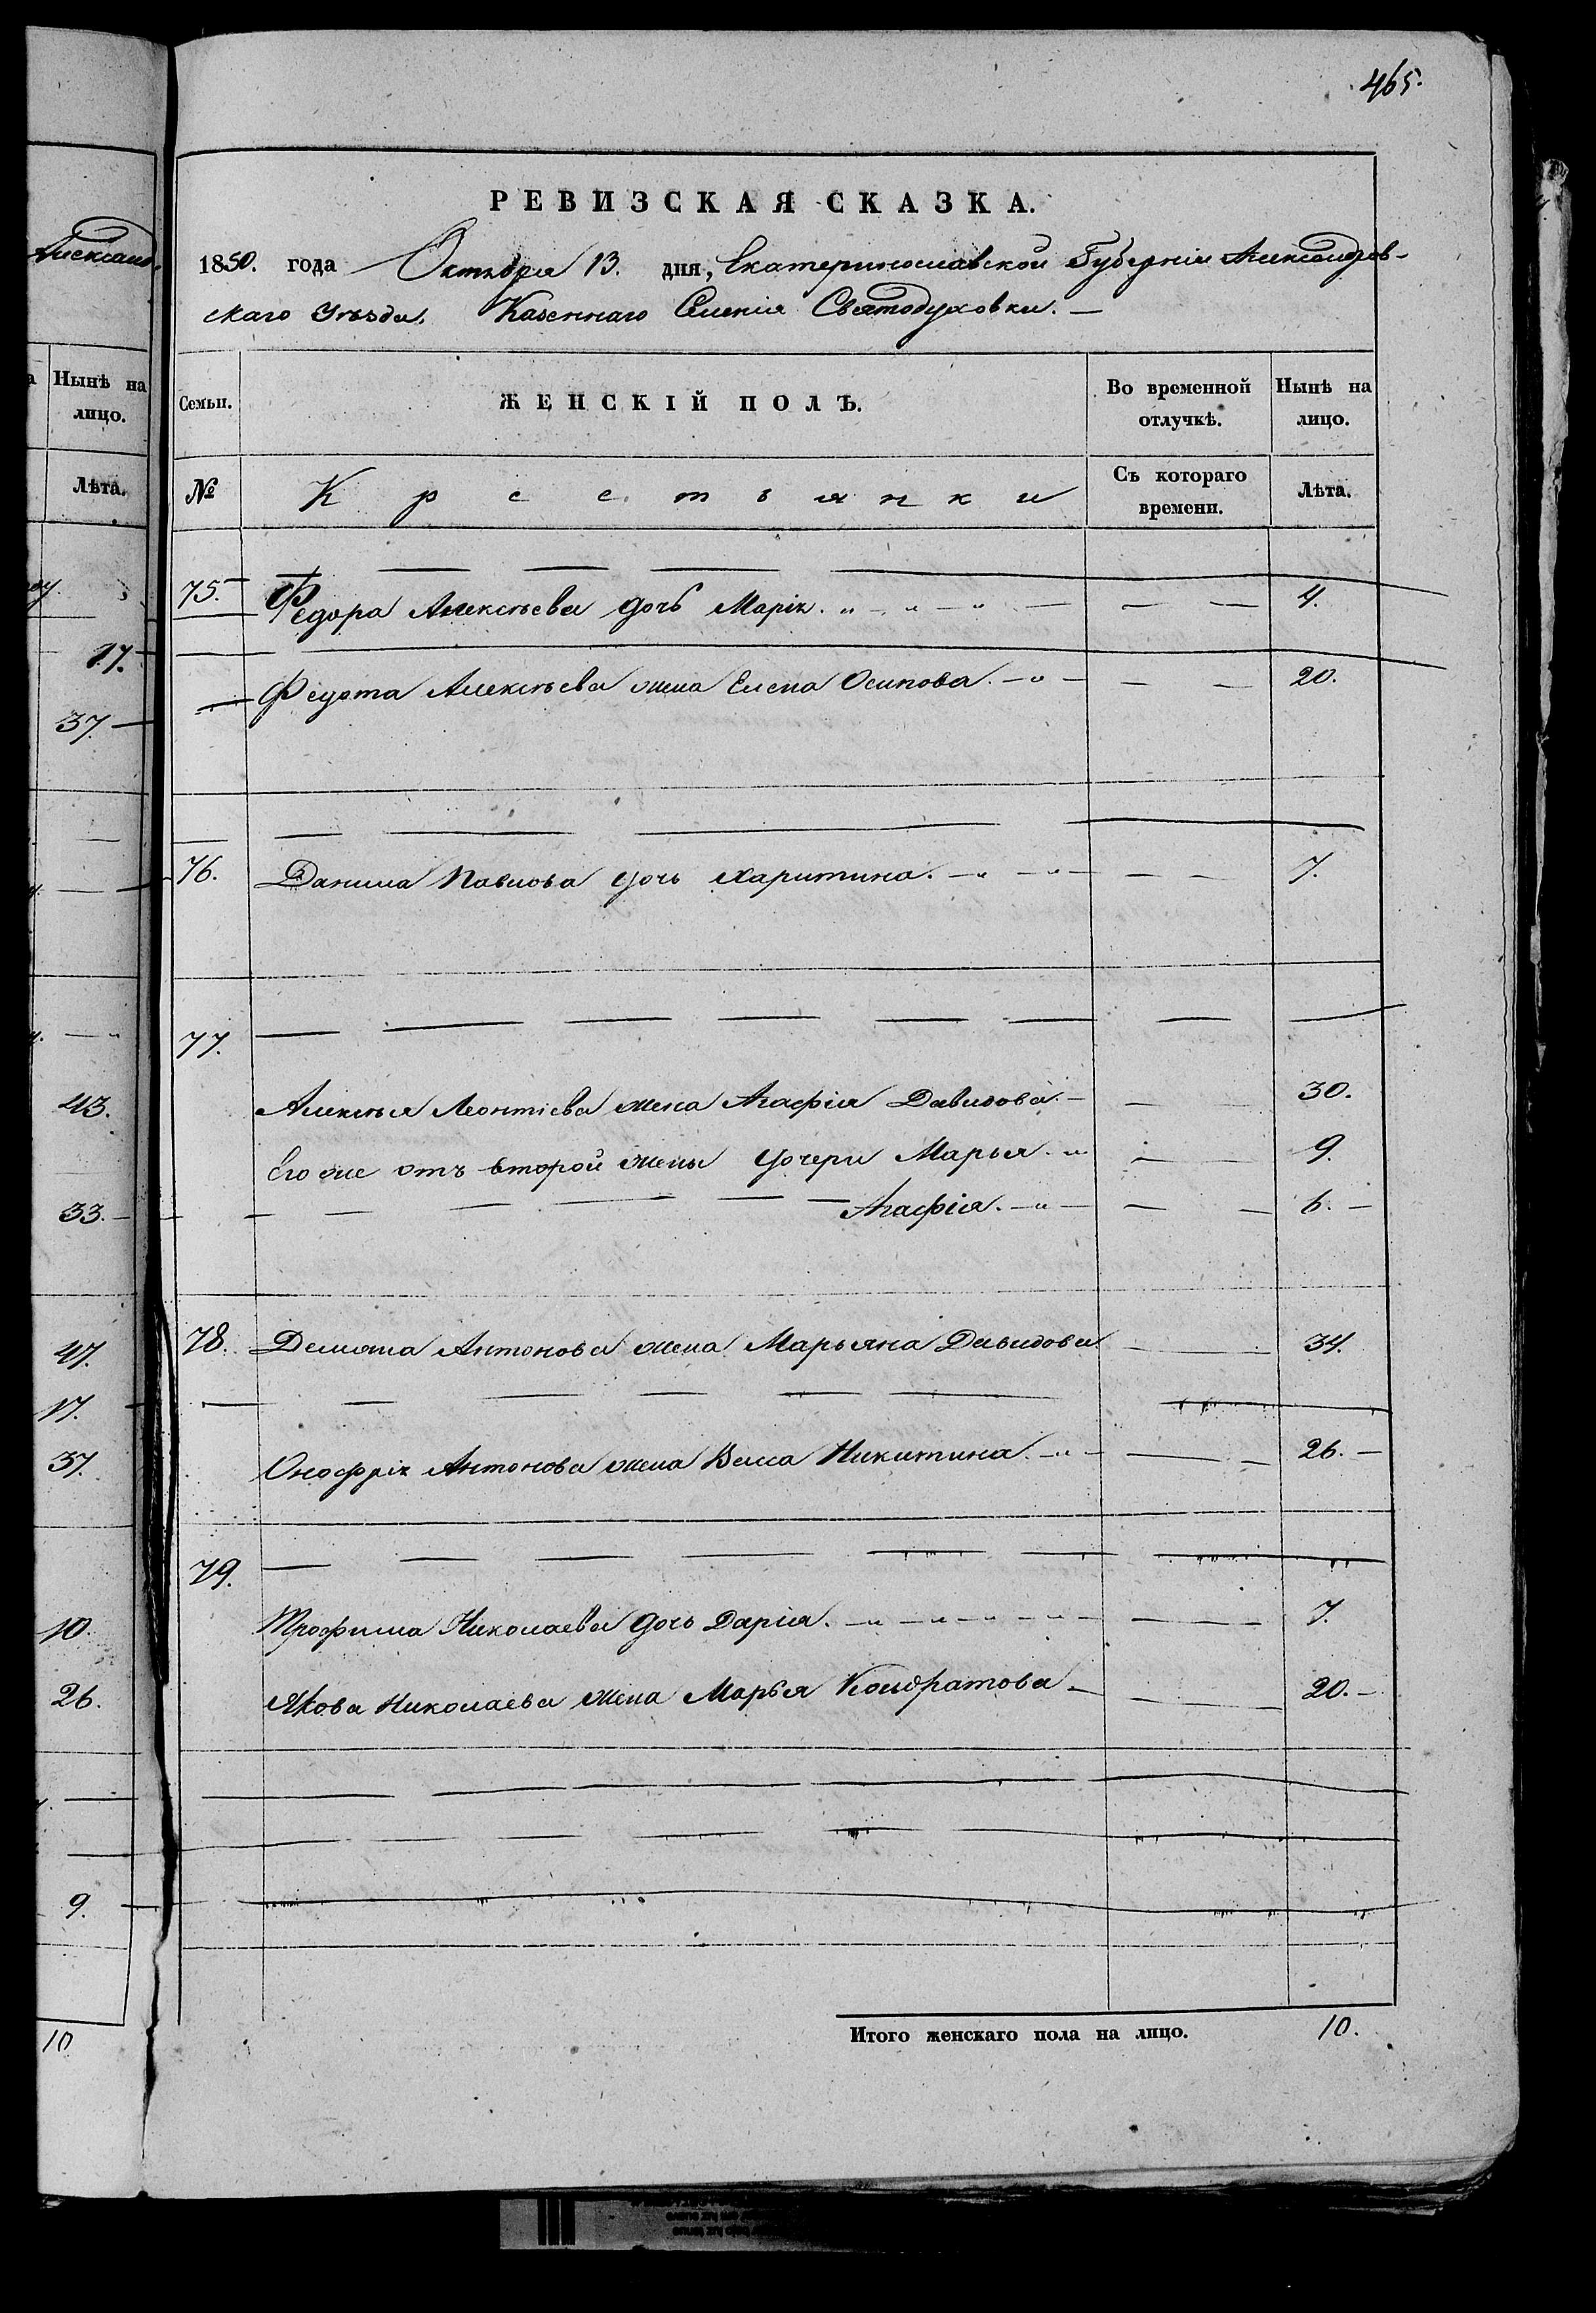 465.
Александ.
Нынѣ на
лицо.
Лѣта.
17.
37.
43.
33.
47.
17.
37.
10.
26.
9.
10
РЕВИЗСКАЯ СКАЗКА.
1850. года Октября 13. дня, Екатеринославской Губерніи Александров-
скаго Уѣзда. Казеннаго Селенія Святодуховки.
Семьи. ЖЕНСКІЙ ПОЛЪ. Во временной отлучкѣ. Нынѣ на лицо.
№ Крестьянки Съ котораго времени. Лѣта.
75. Федора Алексѣева дочь Марія. 4.
Федота Алексѣева жена Елена Осипова. 20.
76. Данила Павлова дочь Харитина. 7.
77.
Алексѣя Леонтіева жена Агафія Давидова 30.
Его же отъ второй жены дочери Марья 9.
Агафія. 6.
78. Демяна Антонова жена Марьяна Давидова 34.
Онофрія Антонова жена Васса Никитина. 26.
79.
Трофима Николаева дочь Дарія. 7.
Якова Николаева жена Марья Кондратова 20.
Итого женскаго пола на лицо. 10.